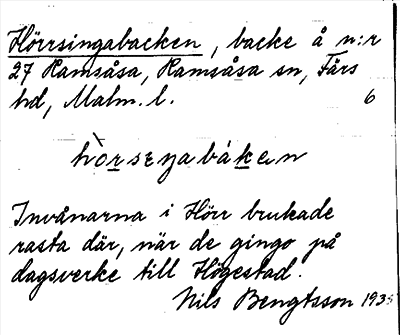 Hörrsingabacken, backe å n:r
27 Ramsåsa, Ramsåsa sn, Färs
hd, Malm. l. 6
Invånarna i Hörr brukade
rasta där, när de gingo på
dagsverke till Högestad.
Nils Bengtsson